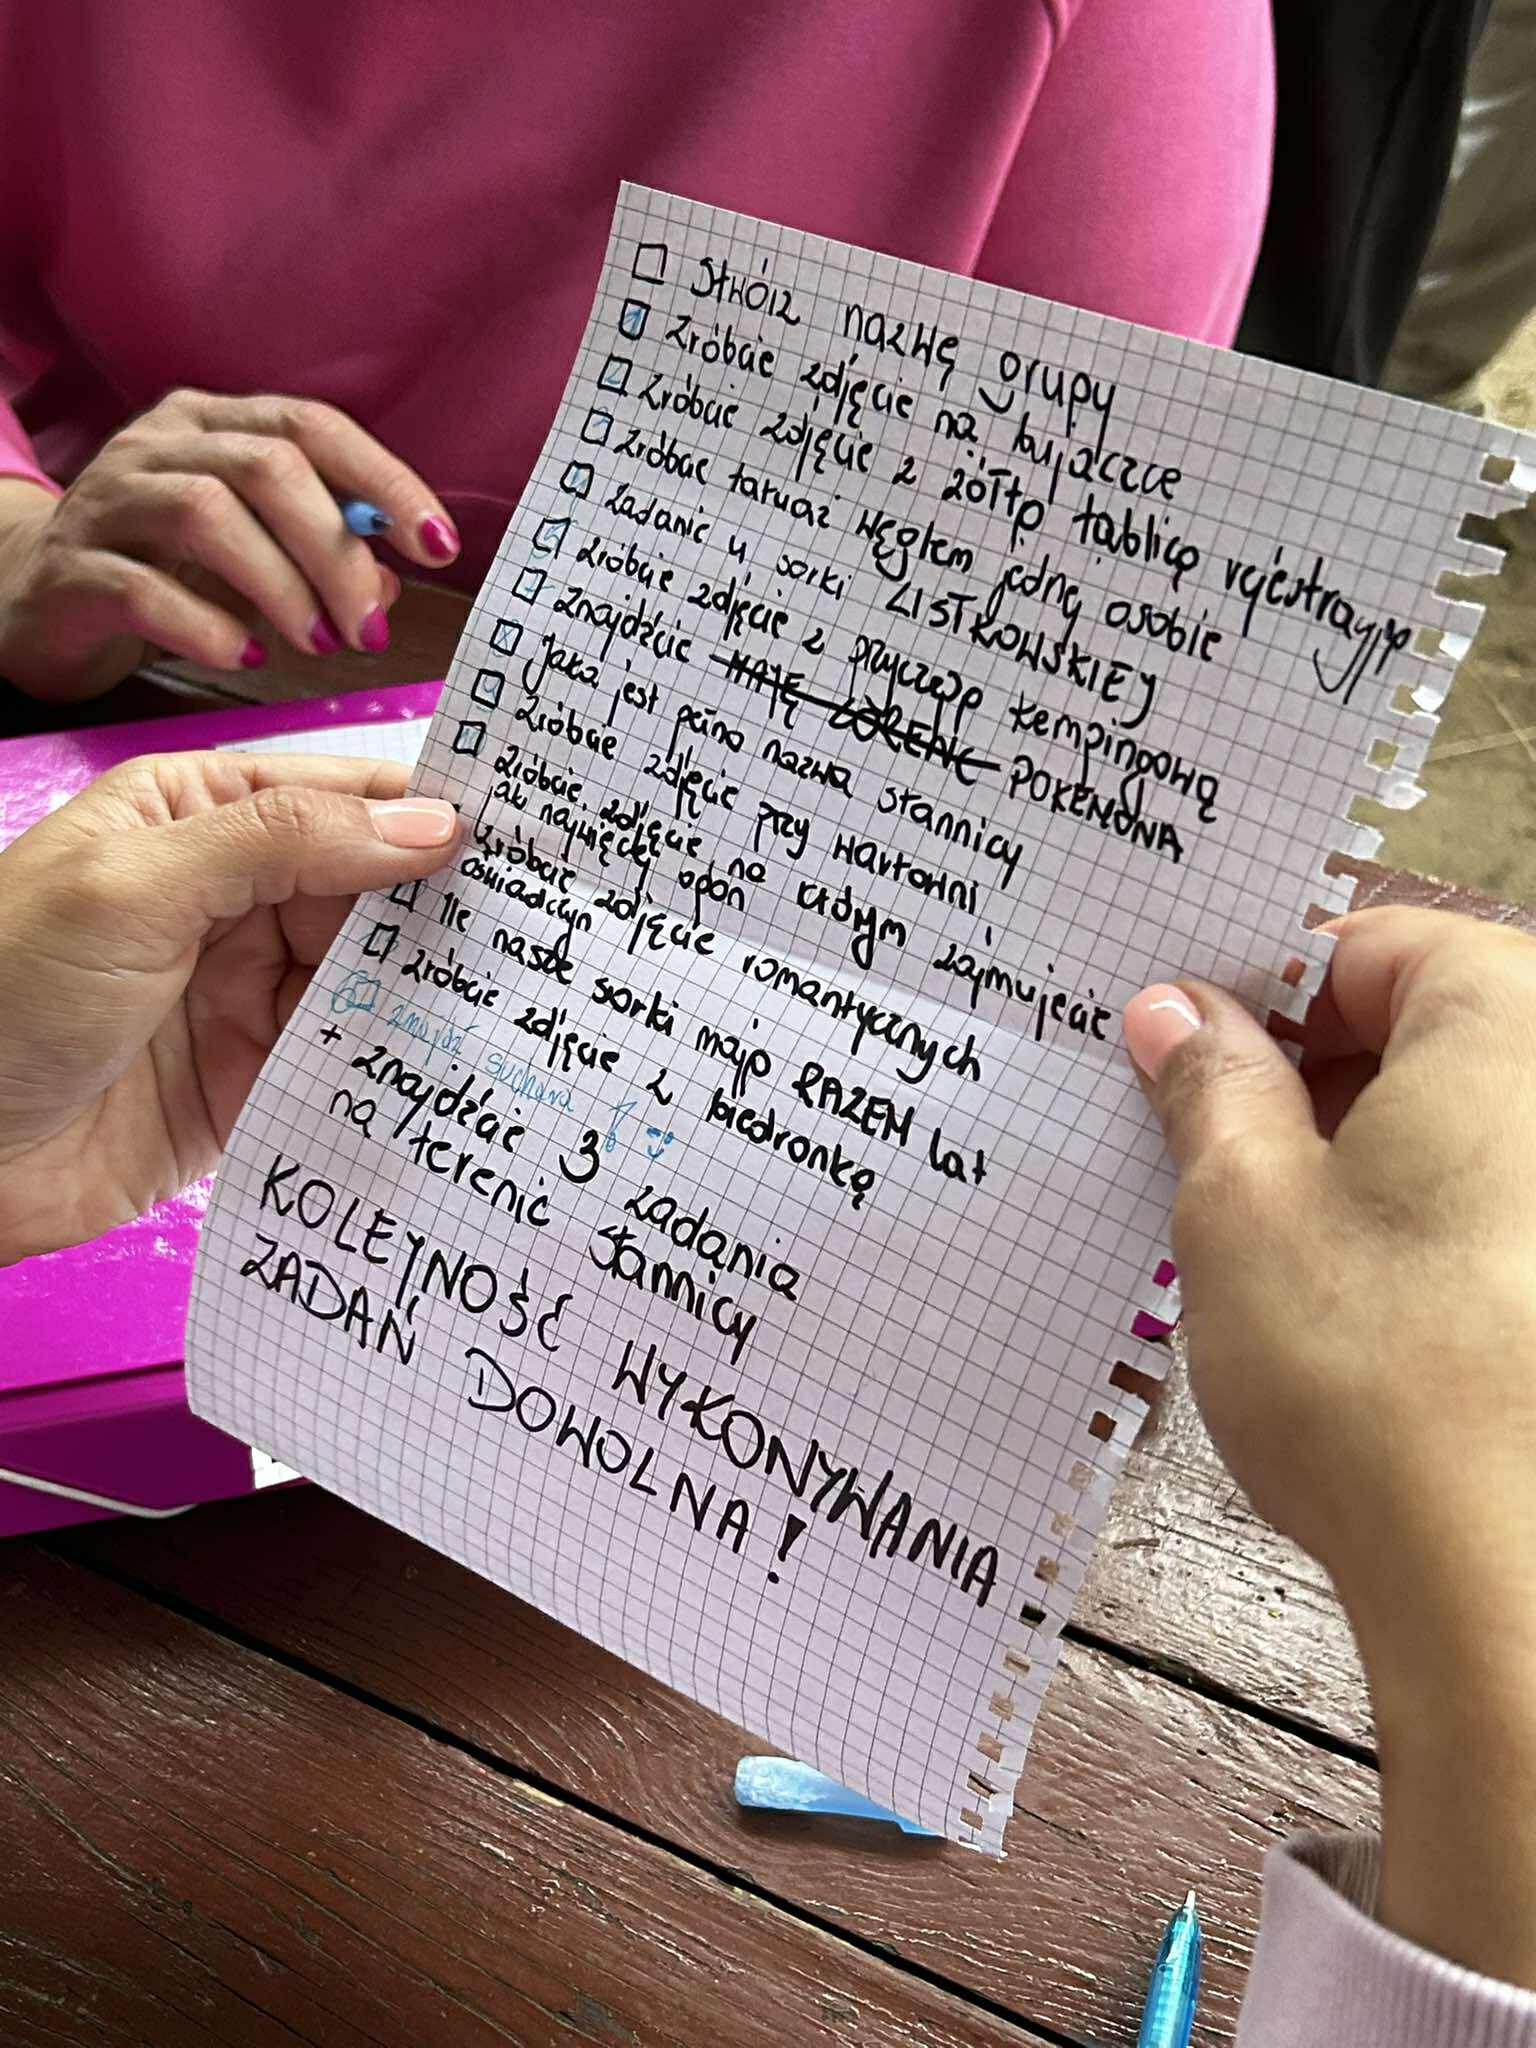 Stwórz nazwę grupy
1 Zróbcie zdjęcie na bujaczce
2 Zróbcie zdjęcie z żółtą tablicą rejestracyjną
Zróbcie tatuaż węglem jednej osobie
Zadanie u sorki LISTKOWSKIEJ
5 Zróbcie zdjęcie z przyczepą kempingową
7 Znajdźcie MAJĘ LORENC POKEMONA
Jaka jest pełna nazwa stannicy
9 Zróbcie zdjęcie przy hartowni
10 Zróbcie zdjęcie na którym zajmujecie
jak najwięcej opon
Zróbcie zdjęcie romantycznych
oświadczyn
Ile nasze sorki mają RAZEM lat
Zróbcie zdjęcie z biedronką
znajdź suchara
+ znajdźcie 3 zadania
na terenie stannicy
KOLEJNOŚĆ WYKONYWANIA
ZADAŃ DOWOLNA!